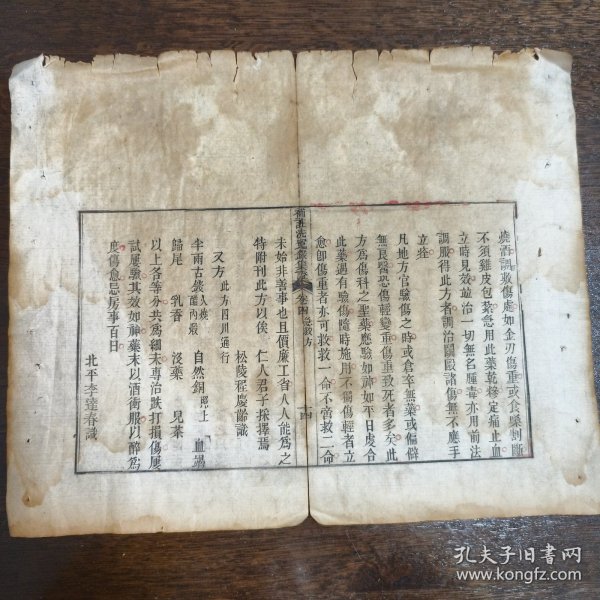 燒酒調敷傷處如金刃傷重或食嗓割斷
不須雞皮包紮急用此藥乾糝定痛止血
立時見效並治一切無名腫毒亦用前法
調服得此方者調治鬬毆諸傷無不應手
立痊
凡地方官驗傷之時或倉卒無藥或偏僻
無良醫恐傷輕變重傷重致死者多矣此
方為傷科之聖藥應驗如神如平日虔合
此藥遇有驗傷隨時施用不獨傷輕者立
愈卽傷重者亦可救救一命不啻救二命
補註洗冤錄集證 卷四 急救方
十四
未始非善事也且價廉工省人人能為之
特附刊此方以俟 仁人君子採擇焉
松陵程慶齡識
又方 此方四川通行
半兩古錢 火煅醋內煅 自然銅 照上 血竭
歸尾 乳香 沒藥 兒茶
以上各等分共為細末專治跌打損傷屢
試屢驗其效如神藥末以酒衝服以醉為
度傷愈忌房事百日
北平李達春識
孔夫子旧书网
www.kongfz.com